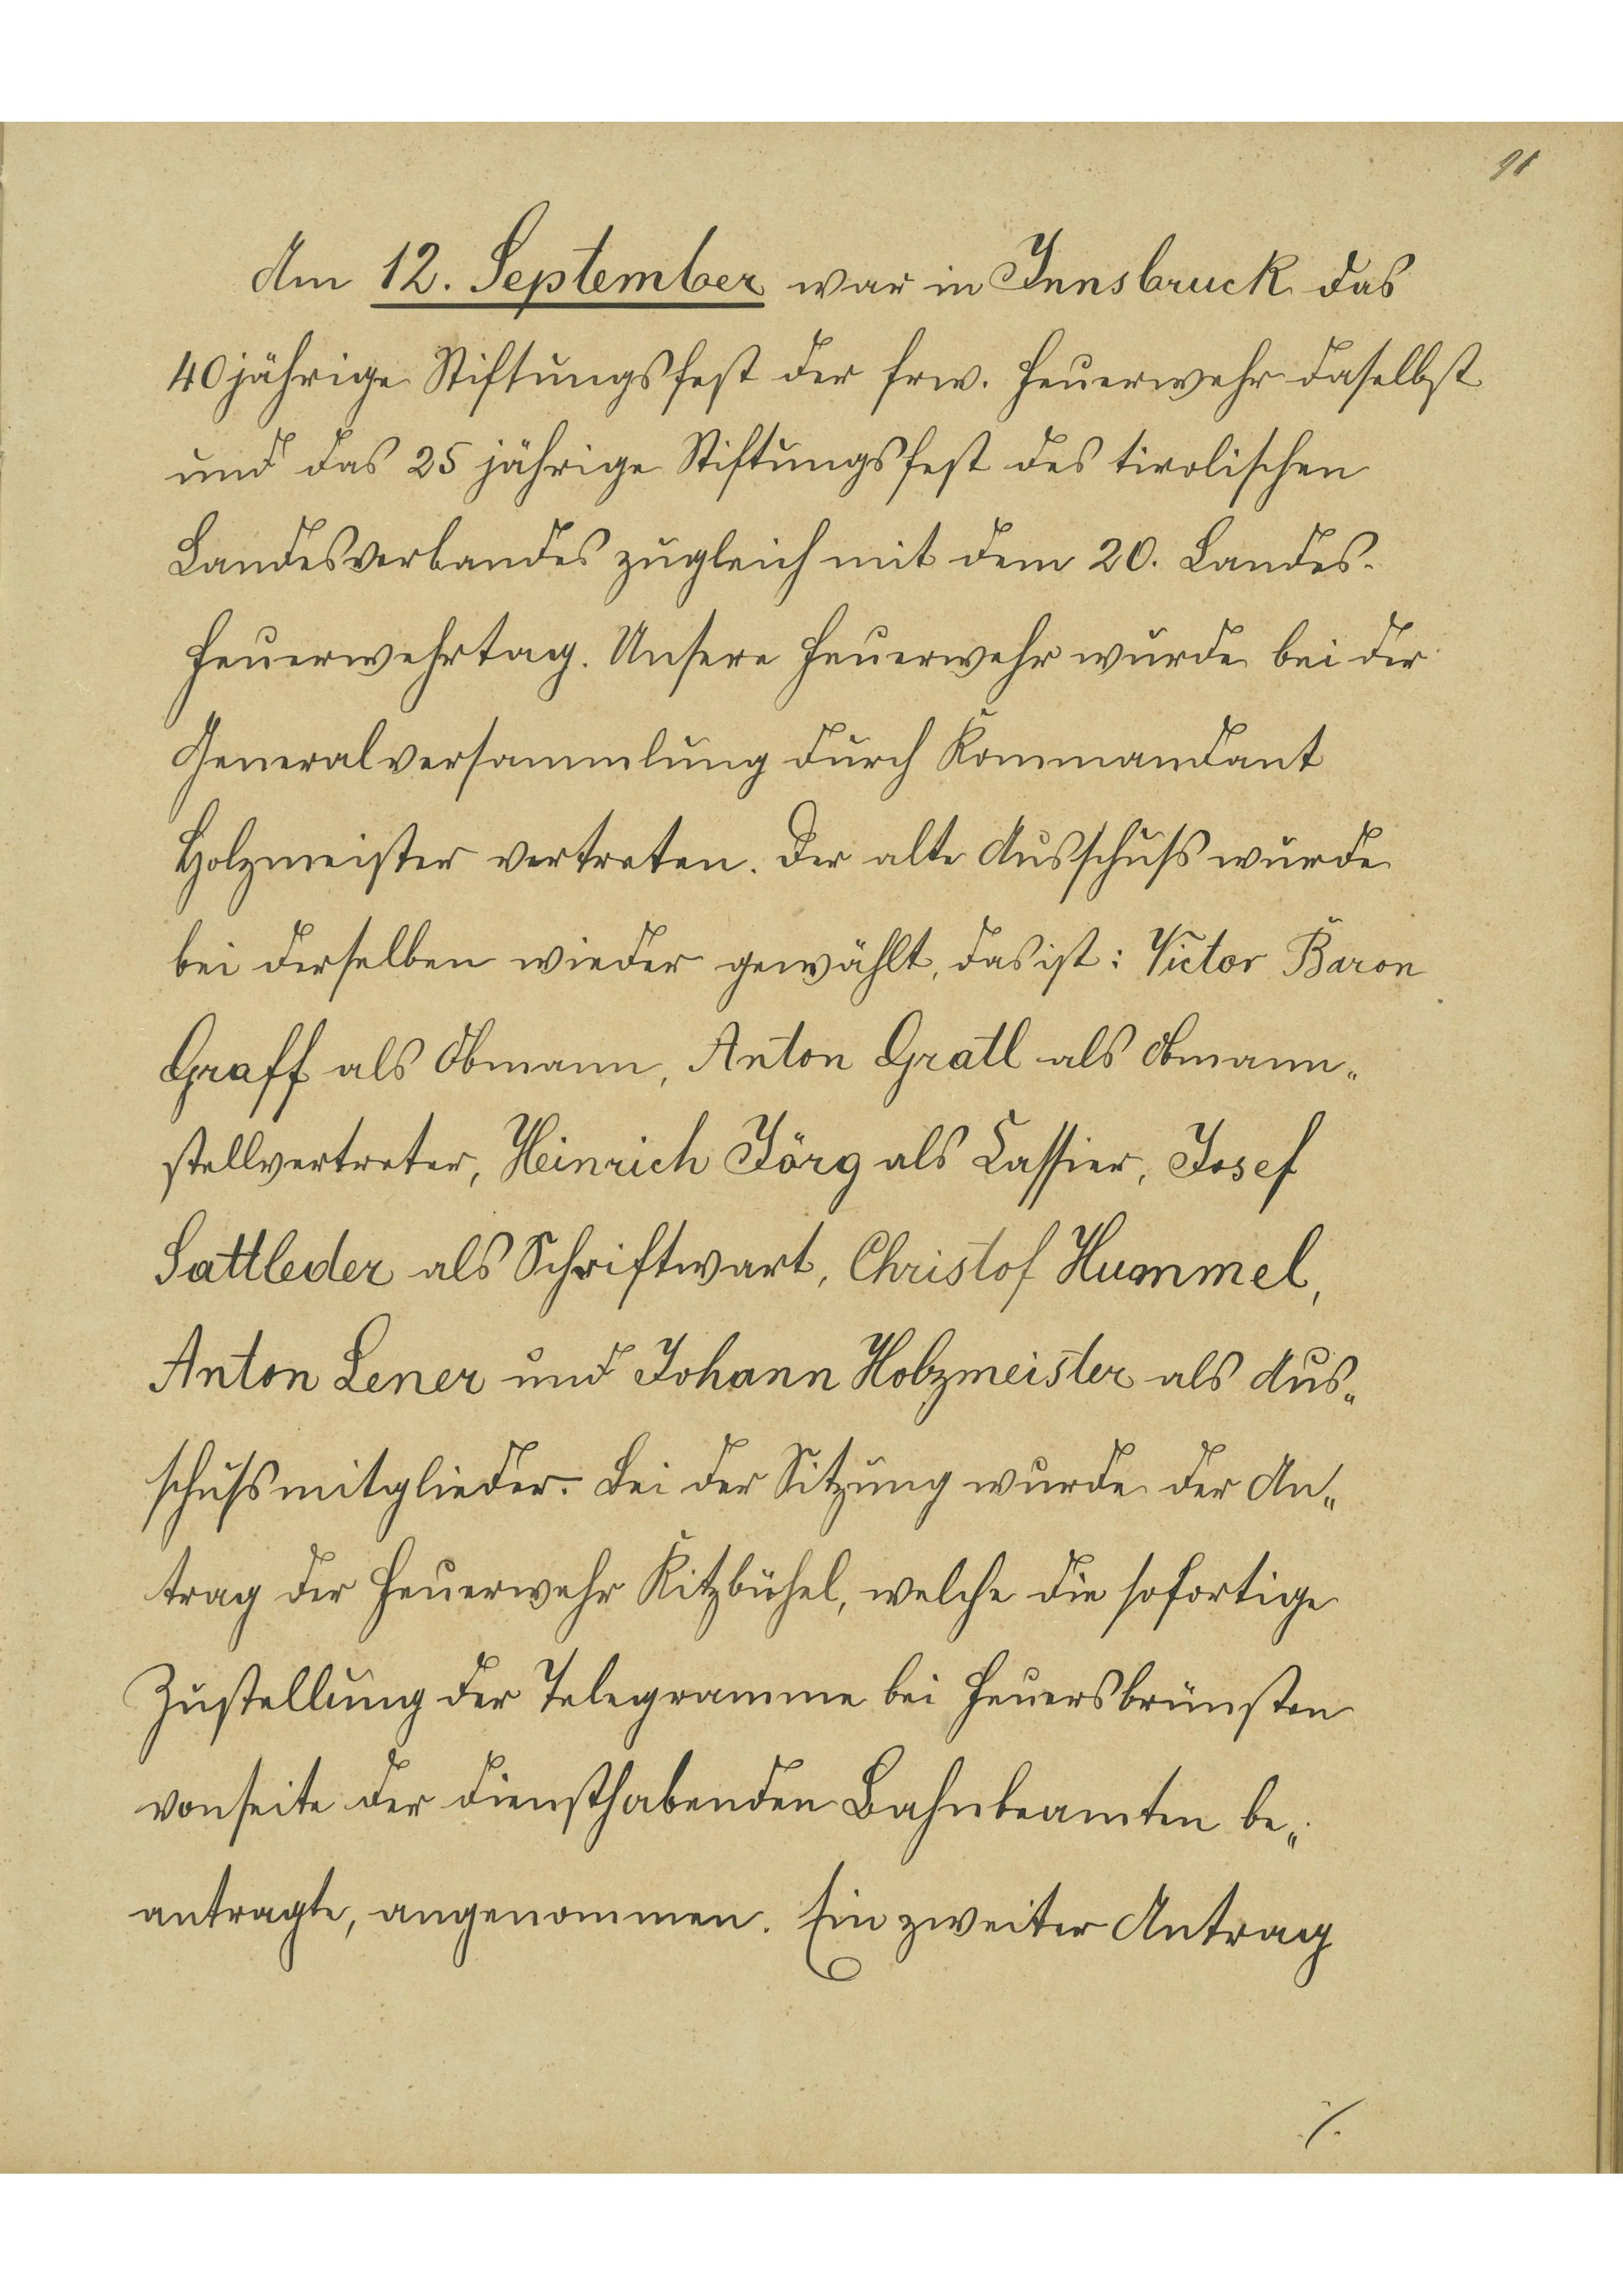 91
Am 12. September war in Innsbruck das
40jährige Stiftungsfest der frw. Feuerwehr daselbst
und das 25 jährige Stiftungsfest des tirolischen
Landesverbandes zugleich mit dem 20. Landes-
Feuerwehrtag. Unsere Feuerwehr wurde bei der
Generalversammlung durch Kommandant
Holzmeister vertreten. Der alte Ausschuß wurde
bei derselben wieder gewählt, das ist: Victor Baron
Graff als Obmann, Anton Gratl als Obmann„
stellvertreter, Heinrich Jörg als Cassier, Josef
Sattleder als Schriftwart, Christof Hummel,
Anton Lener und Johann Holzmeister als Aus„
schußmitglieder. Bei der Sitzung wurde der An„
trag der Feuerwehr Kitzbühel, welche die sofortige
Zustellung der Telegramme bei Feuersbrünsten
vonseite der diensthabenden Bahnbeamten be„
antragte, angenommen. Ein zweiter Antrag
./.